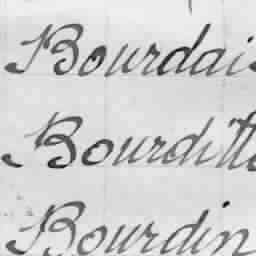 Bourdais
Bourditte
Bourdin